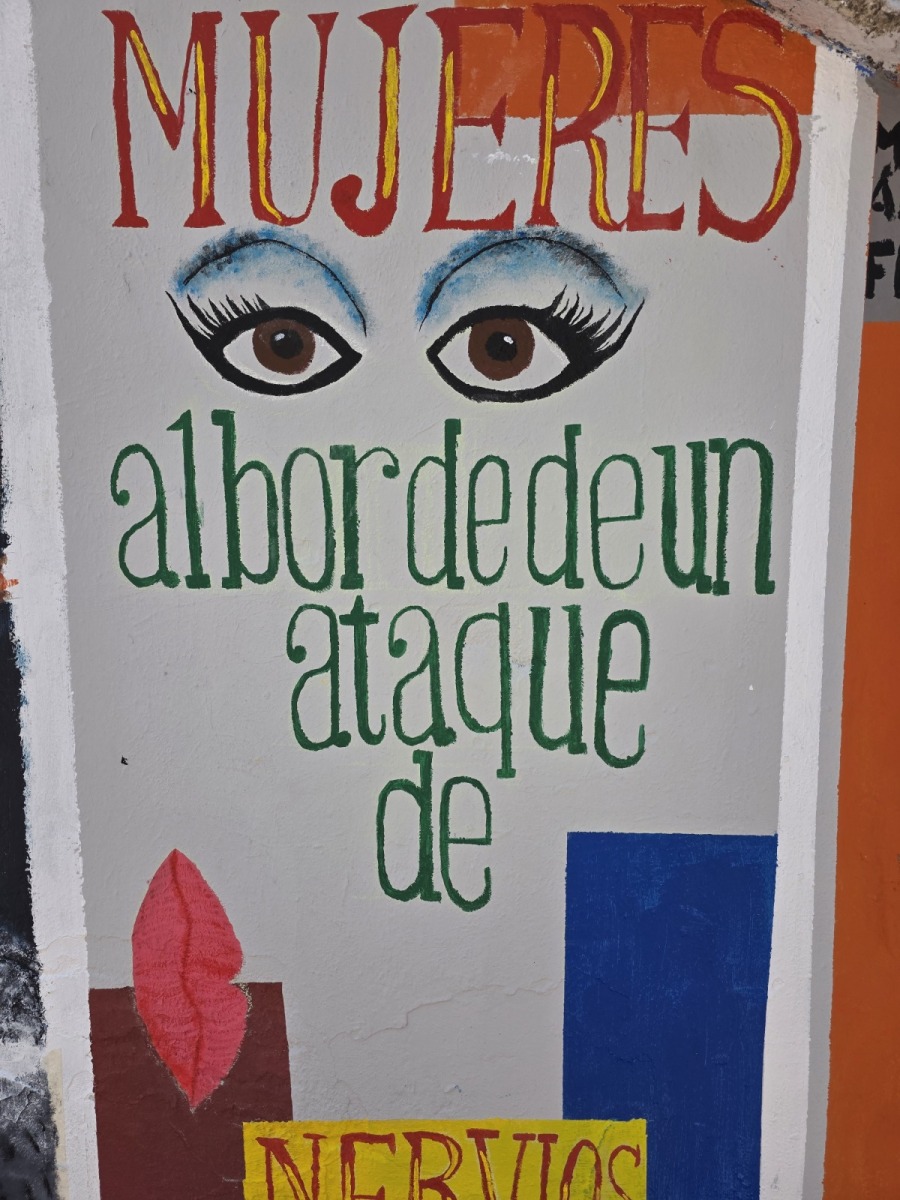 MUJERES
al borde de un
ataque
de
NERVIOS